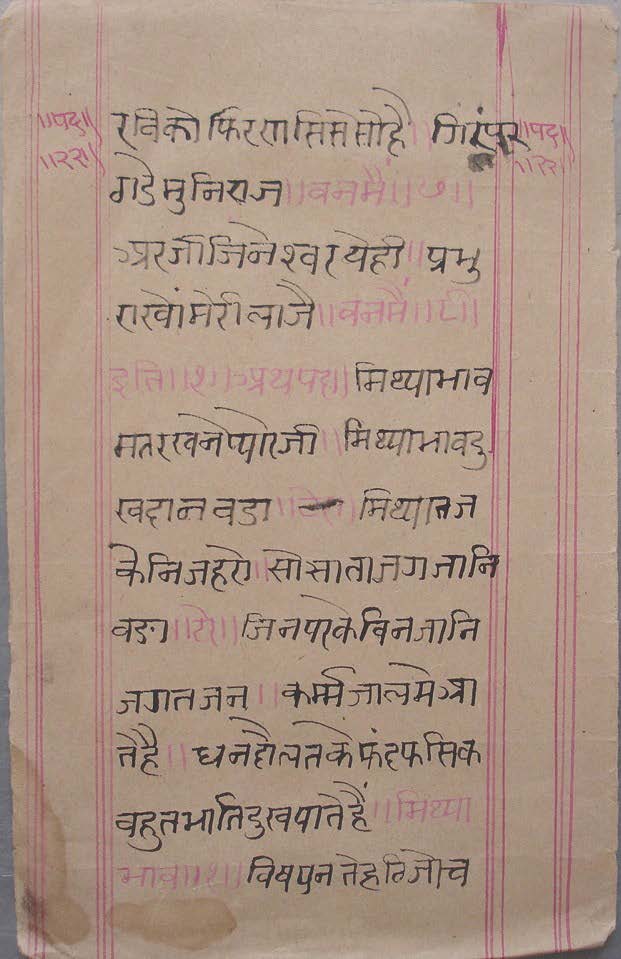 ॥पद॥ रविको फिरसासिसेसोहै॥ गिरंपर ॥पद॥
॥२२॥ गडेमुनिराज॥वनमैं॥७॥ ॥२२॥
अरजीजिनेश्वरयेही॥ प्रभु
राखोंमेरीलाजै॥वनमैं॥८॥
इति॥१॥अथपद॥मिथ्याभाव
मतरखनेप्योरजी॥ मिथ्याभावदु
खदानवडा॥टेर॥ मिथ्यातज
केनिजहेरो॥सोसाताजगजानि
वडा॥टेर॥ जिनपरकेबिनजानि
जगतजन॥ कर्म्मजालमेआ
तेहै॥ धनदौलतकेफंदफसिक
वहुतभांतिदुखपातेहैं॥मिथ्या
भाव॥१॥विषय